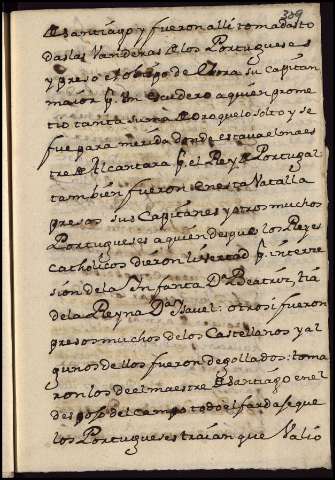 309
de Santiago y fueron alli tomadas to
das las Vanderas de los Portugueses
y preso el obispo de Ebora su Capitan
maior p. Un escudero a quien prome
tio tanta suma de oro que lo solto y se
fue para merida donde estaua el maes
tre de Alcantara p. el Rey de Portugal
tambien fueron en esta Vatalla
presos sus Capitanes y otros muchos
Portugueses a quien despues los Reyes
Catholicos dieron livertad p. interre
sion de la Infanta Da. Beatriz, tia
de la Reyna Da. Isavel: otrosi fueron
presos muchos de los Castellanos y al
gunos de llos fueron degollados: toma
ron los de el maestre de Santiago en el
despojo del campo todo el fardaje que
los Portugueses traian que Valio